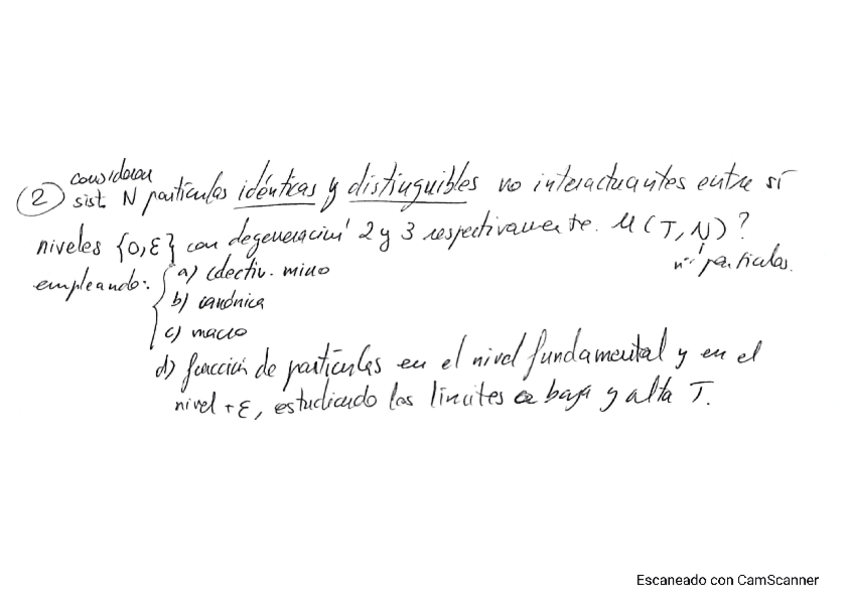 consideran
② sist N partículas idénticas y distinguibles no interactuantes entre sí
niveles {0,ε} con degeneración 2 y 3 respectivamente. μ(T,N)?
nº partículas.
empleando: a) colectiv. micro
b) canónica
c) macro
d) función de partículas en el nivel fundamental y en el
nivel +ε, estudiando los límites a baja y alta T.
Escaneado con CamScanner